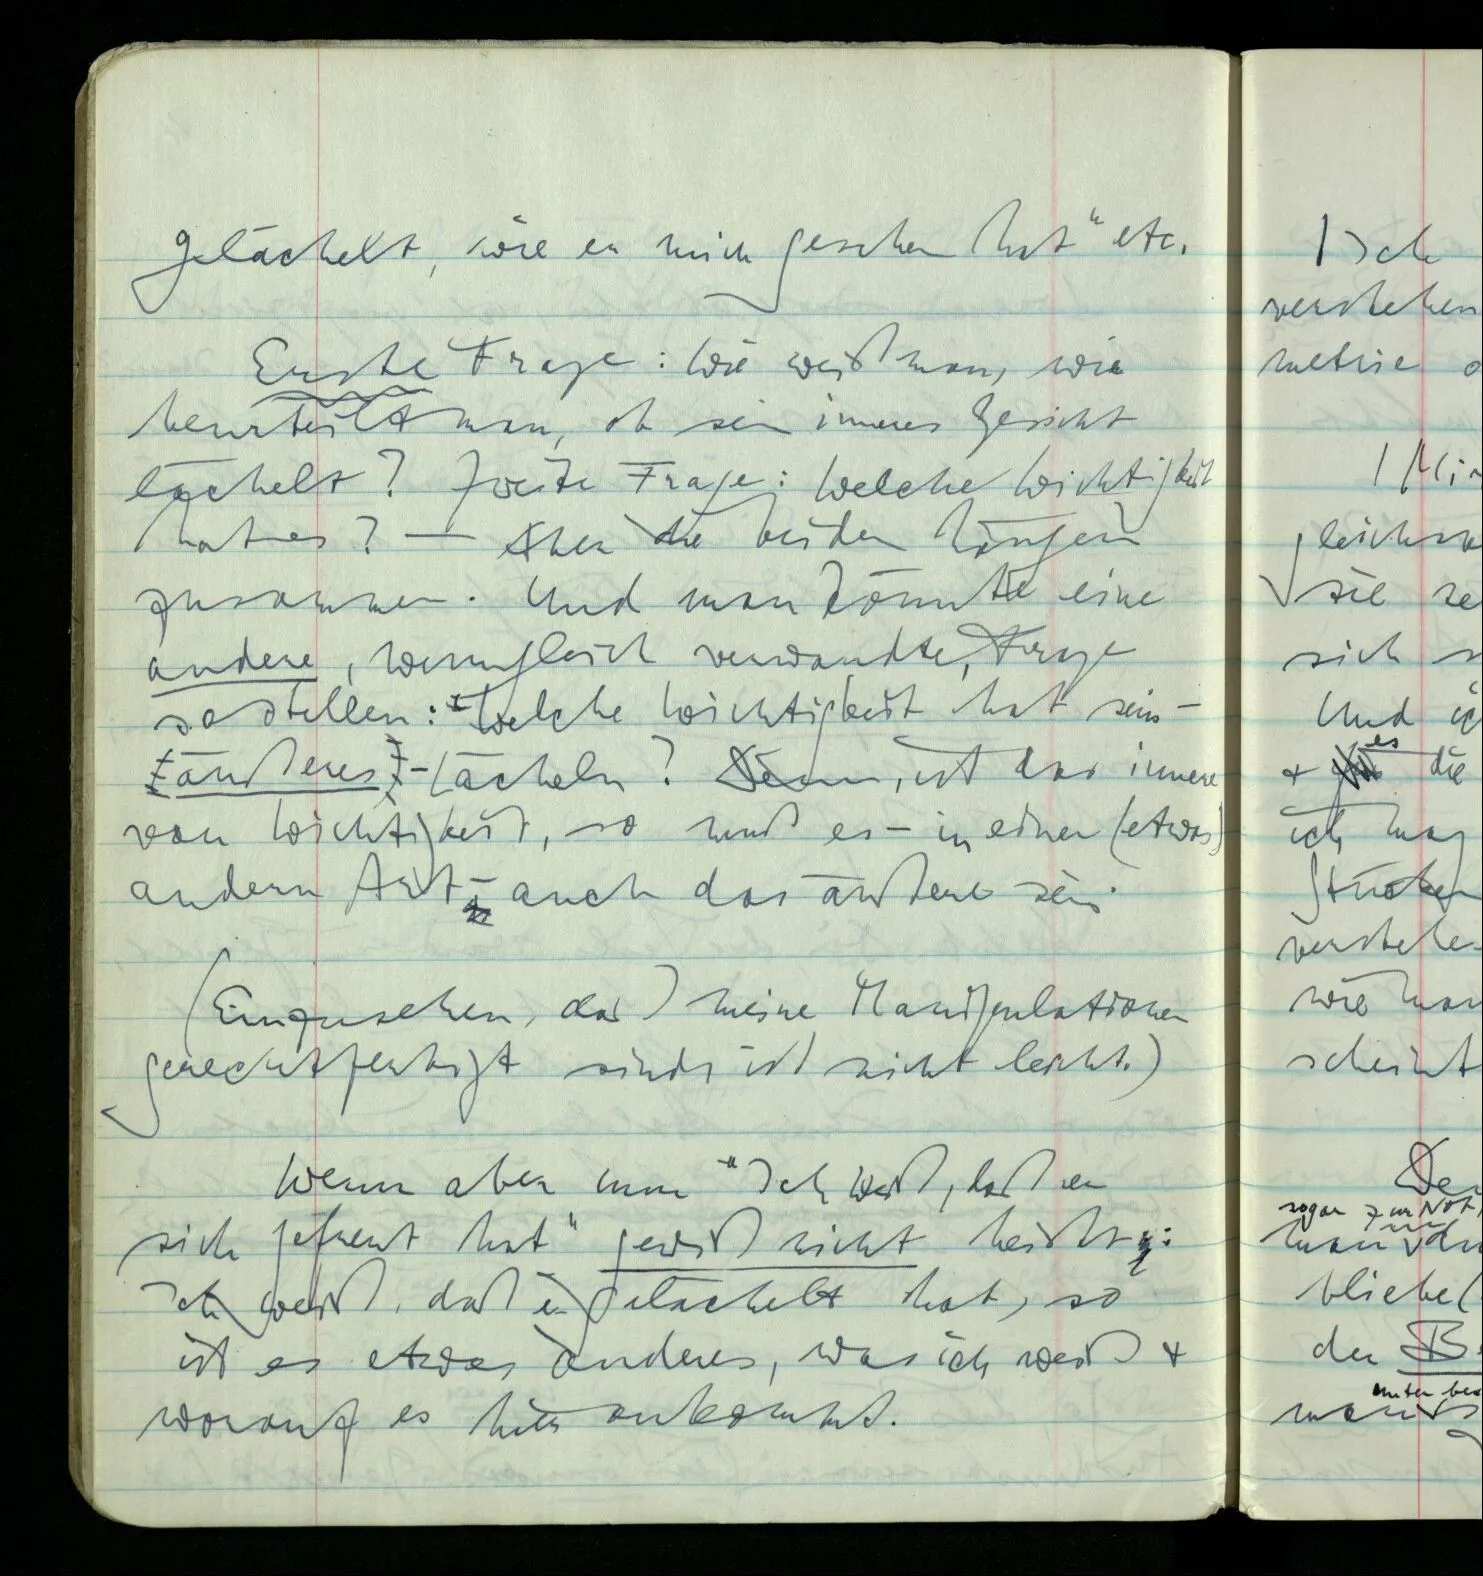 gelächelt, wie er mich gesehen hat" etc.
Erste Frage: Wie weiß man, wie
beurteilt man, ob sein inneres Gesicht
lächelt? Zweite Frage: Welche Wichtigkeit
hat es? — Aber die beiden hängen
zusammen. Und man könnte eine
andere, wenngleich verwandte, Frage
so stellen: Welche Wichtigkeit hat sein –
äußeres – Lächeln? Denn, ist das innere
von Wichtigkeit, so muß es – in einer (etwas)
andern Art – auch das äußere sein.
(Einzusehen, daß meine Manipulationen
gerechtfertigt sind, ist nicht leicht.)
Wenn aber nun "Ich weiß, daß er
sich gefreut hat" gewiß nicht heißt:
Ich weiß, daß er gelächelt hat, so
ist es etwas anderes, was ich weiß +
worauf es hier ankommt.
Ich
verstehen
metrie
gleichsa
sie se
sich s
Und ic
es
+ die
ich mag
Stücken
verstehe
wie man
scheint
De
sogar zur Not
man du
bliebe (
der B
unter bes
man s